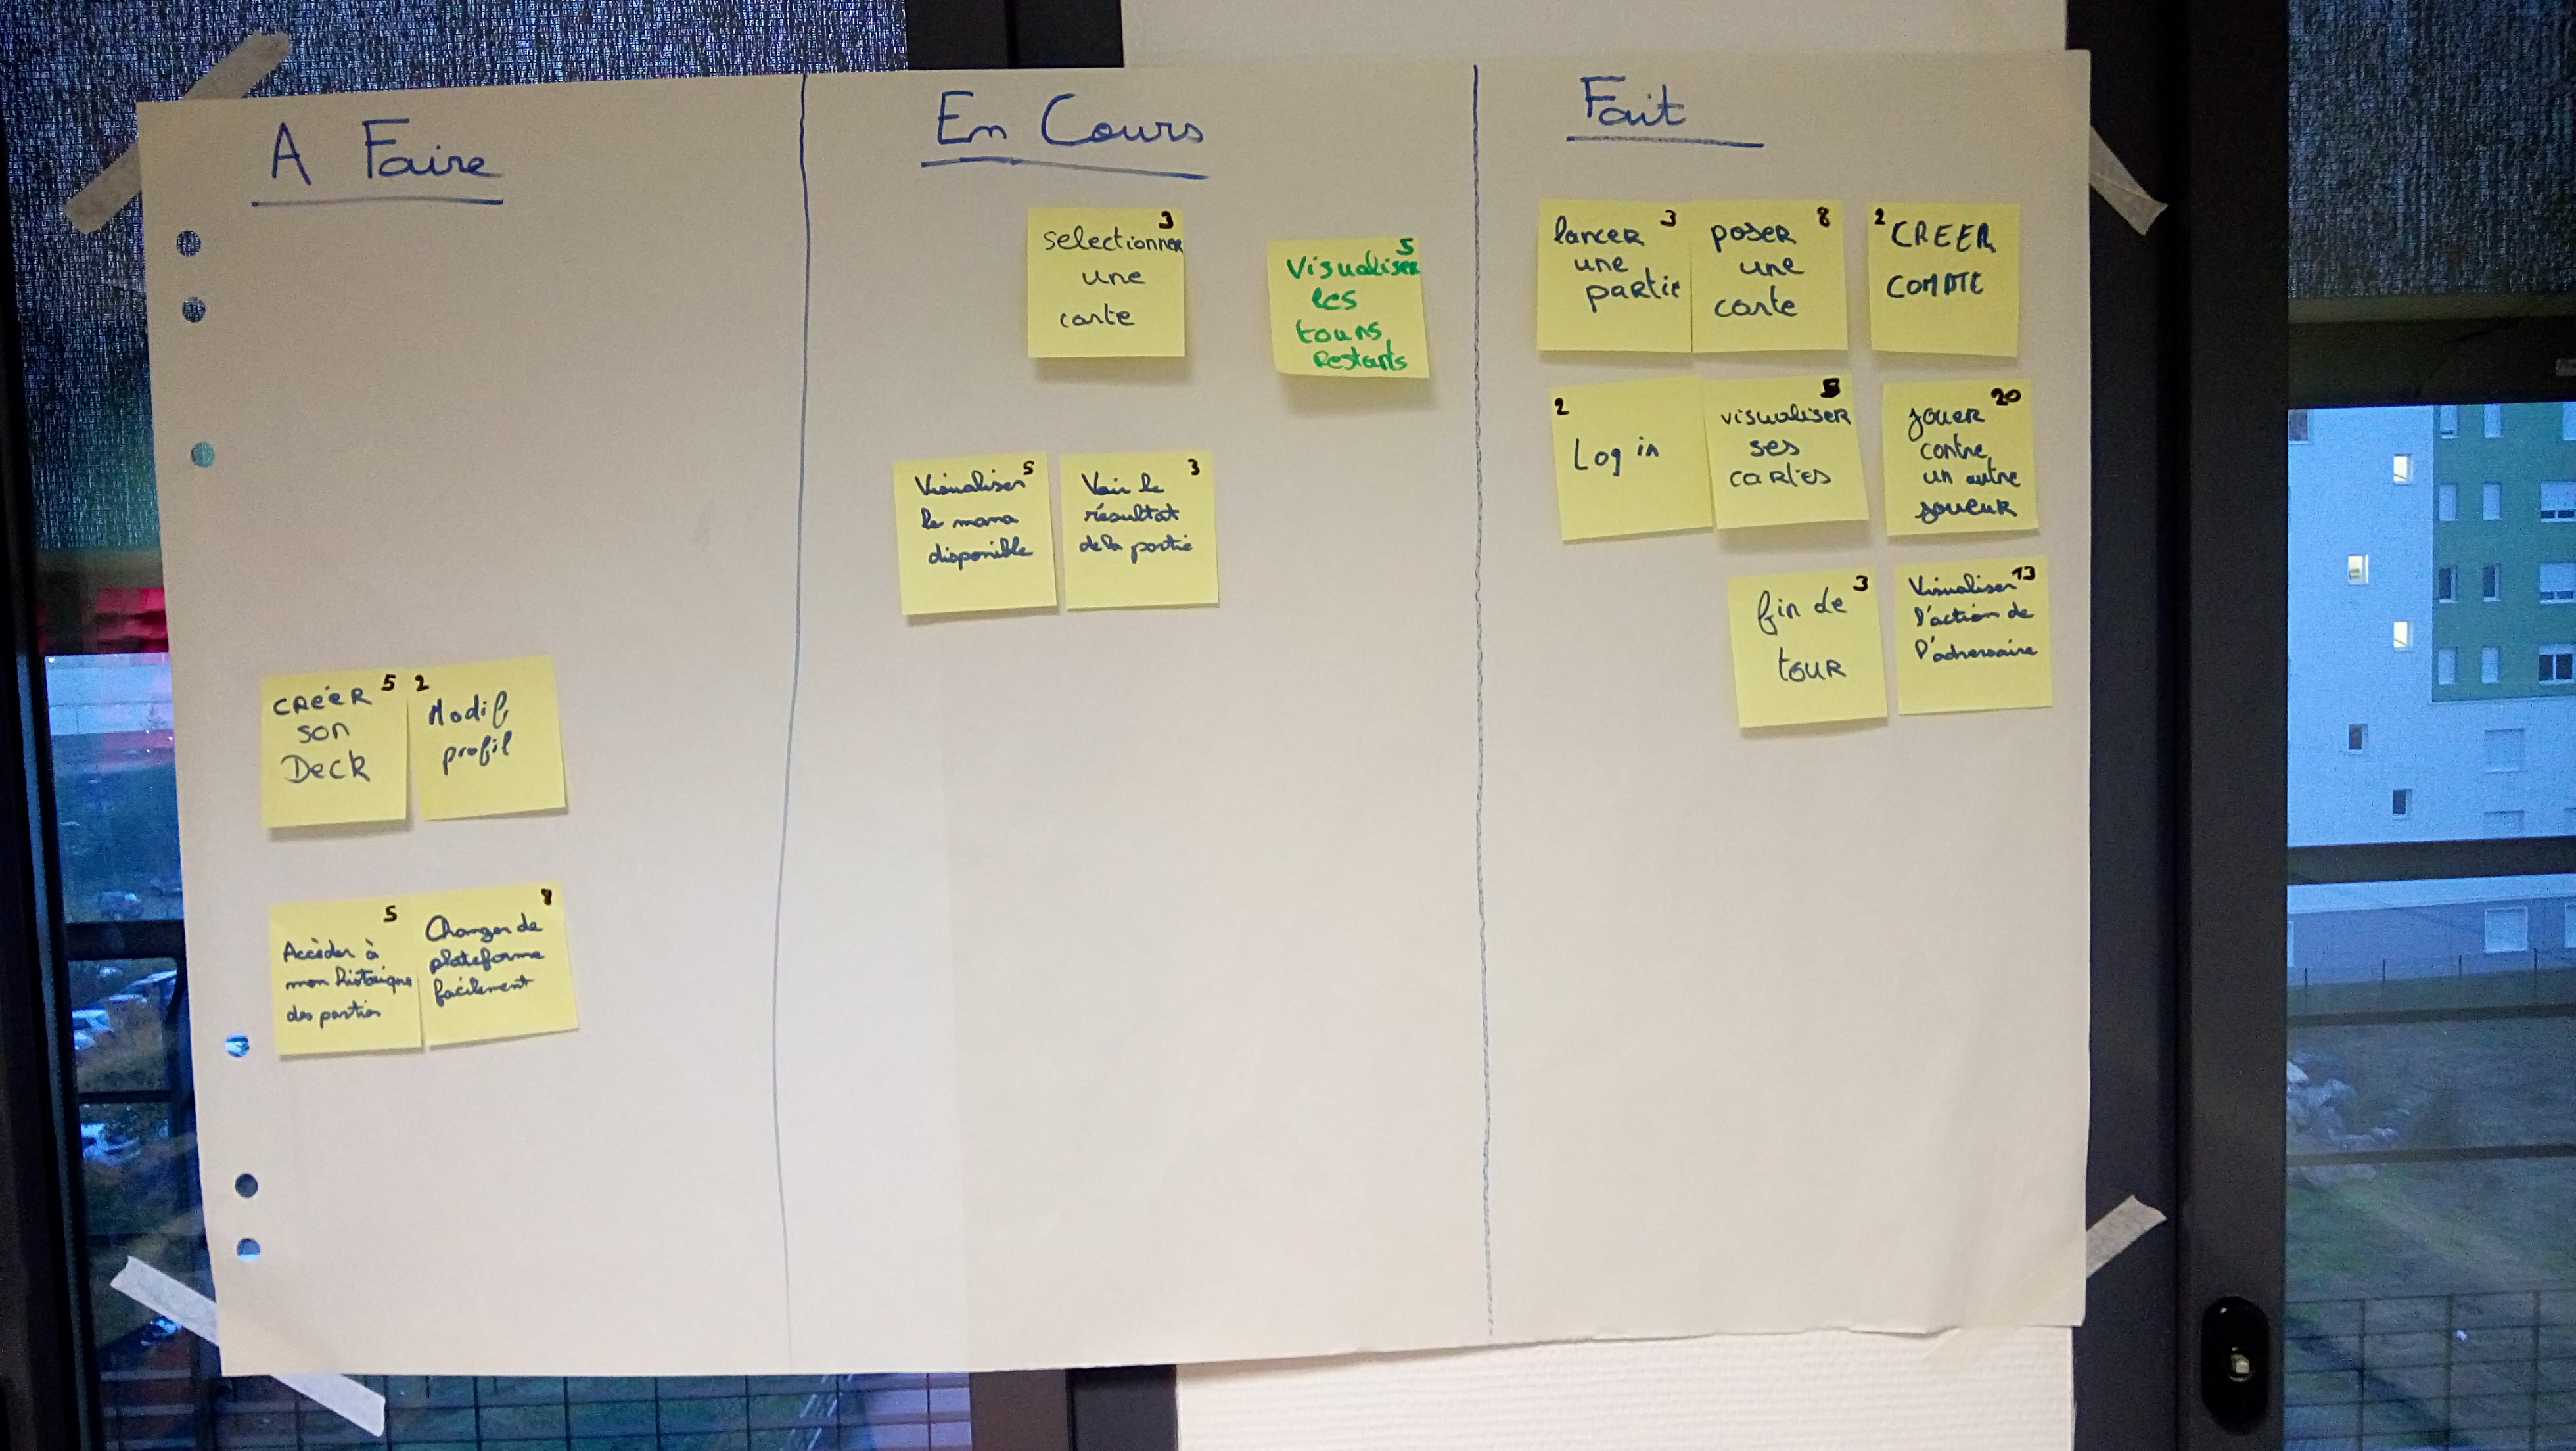 A Faire
5
CRÉER
son
Deck
2
Modif
profil
5
Accéder à
mon historique
des parties
8
Changer de
plateforme
facilement
En Cours
3
selectionner
une
carte
5
Visualiser
les
tours
Restants
5
Visualiser
le mana
disponible
3
Voir le
résultat
de la partie
Fait
3
lancer
une
partie
8
poser
une
carte
2
CREER
COMPTE
2
Log in
visualiser
ses
cartes
20
jouer
contre
un autre
joueur
3
fin de
tour
13
Visualiser
l'action de
l'adversaire